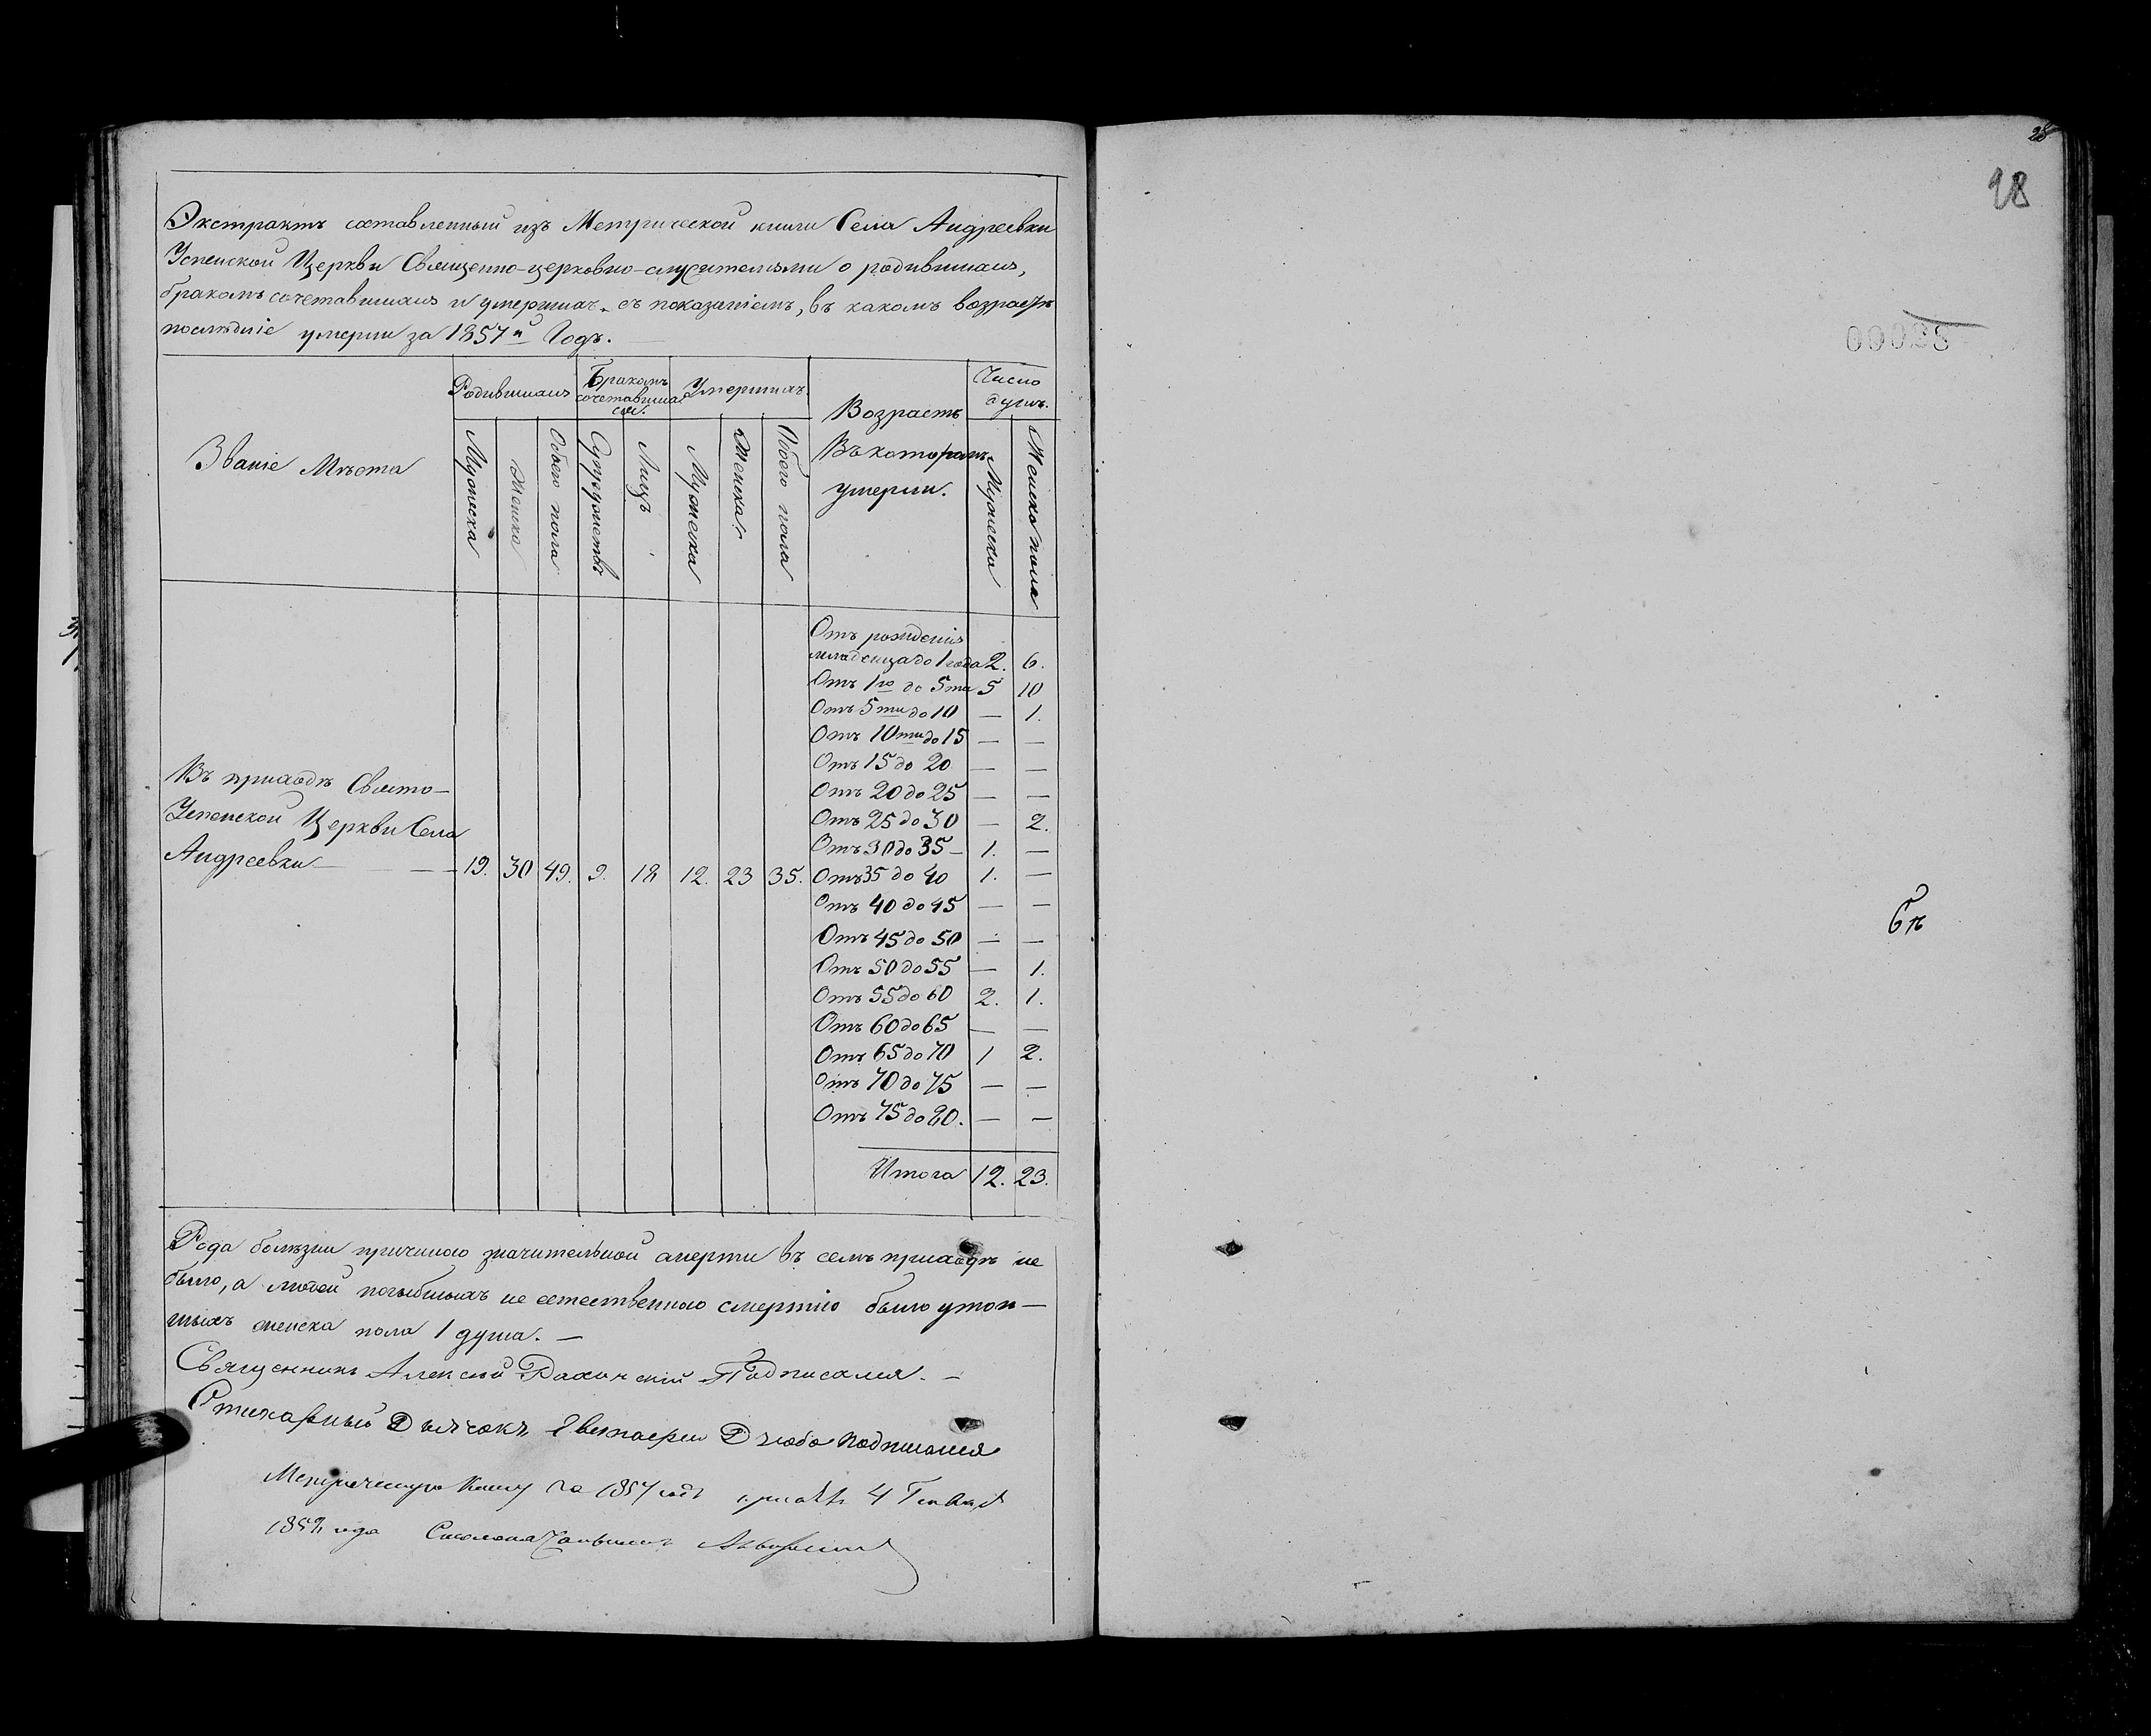 Экстрактъ составленный изъ Метрической книги Села Андреевки
Успенской Церкви Священно-церковно-служителями о родившихся,
бракомъ сочетавшихся и умершихъ, съ показаніемъ, въ какомъ возрастѣ
послѣдніе умерли за 1857й Годъ.
Званіе Мѣста
Родившихся
Бракомъ
сочетавших
ся.
Умершихъ
Возрастъ
Въ которомъ
умерли.
Число
душъ.
Мужеска
Женска
Обоего пола
Супружествъ
Лицъ
Мужеска
Женска
Обоего пола
Мужеска
Женска пола
Въ приходѣ Свято-
Успенской Церкви Села
Андреевки — 19. 30 49. 9. 18 12. 23 35.
Отъ рожденія
младенца до 1 года 2. 6.
Отъ 1го до 5ти 5 10
Отъ 5ти до 10 — 1.
Отъ 10ти до 15 — —
Отъ 15 до 20 — —
Отъ 20 до 25 — —
Отъ 25 до 30 — 2.
Отъ 30 до 35 — 1. —
Отъ 35 до 40 1. —
Отъ 40 до 45 — —
Отъ 45 до 50 — —
Отъ 50 до 55 — 1.
Отъ 55 до 60 2. 1.
Отъ 60 до 65 — —
Отъ 65 до 70 1 2.
Отъ 70 до 75 — —
Отъ 75 до 80. — —
Итога 12. 23.
Рода болѣзни причиною значительной смерти въ семъ приходѣ не
было, а людей погибшихъ не естественною смертію было утоп-
шихъ женска пола 1 душа. —
Священникъ Алексѣй Подписался. —
Стихарный Дьячокъ Евстафий Дзюба подписался
Метрическую Книгу за 1857 годъ 4 Генваря
года
28
18
00028